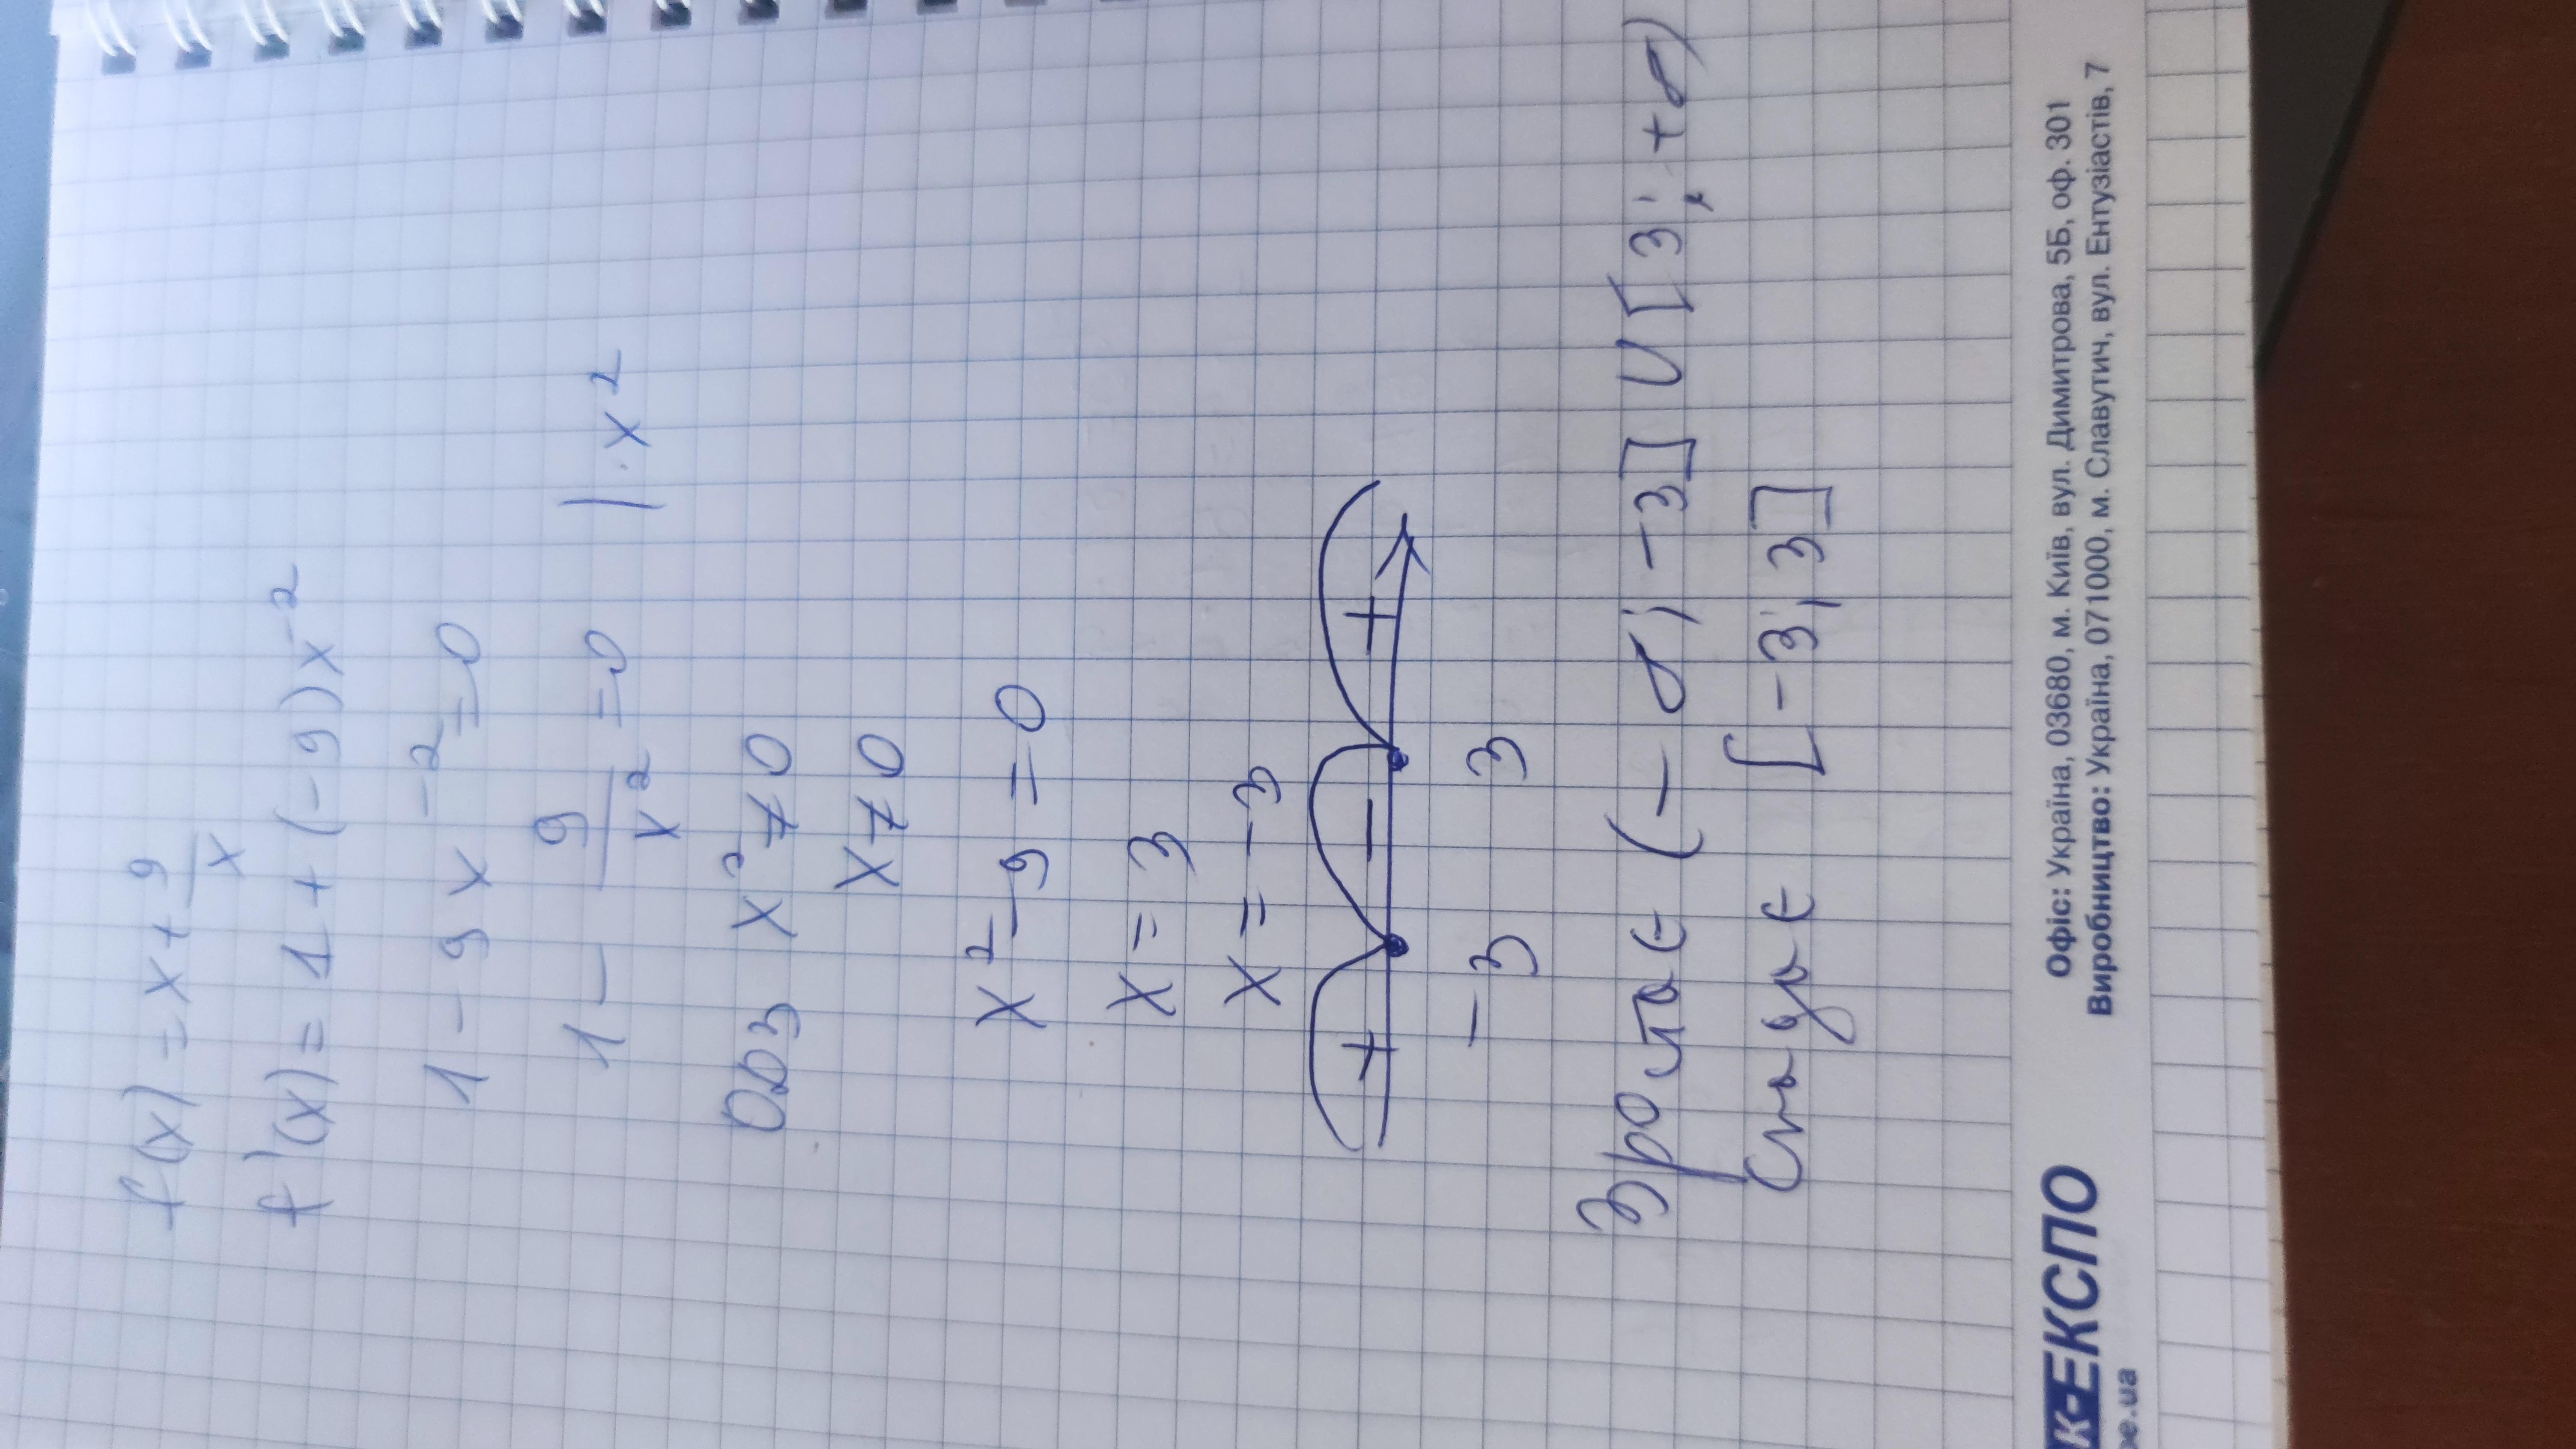 f(x) = x + 9/x
f'(x) = 1 + (-9)x^-2
1 - 9x^-2 = 0
1 - 9/x^2 = 0 | · x^2
ОДЗ x^2 ≠ 0
x ≠ 0
x^2 - 9 = 0
x = 3
x = -3
+ - +
-3 3
Зростає (-∞; -3] U [3; +∞)
Спадає [-3; 3]
К-ЕКСПО
Офіс: Україна, 03680, м. Київ, вул. Димитрова, 5Б, оф. 301
Виробництво: Україна, 071000, м. Славутич, вул. Ентузіастів, 7
pe.ua